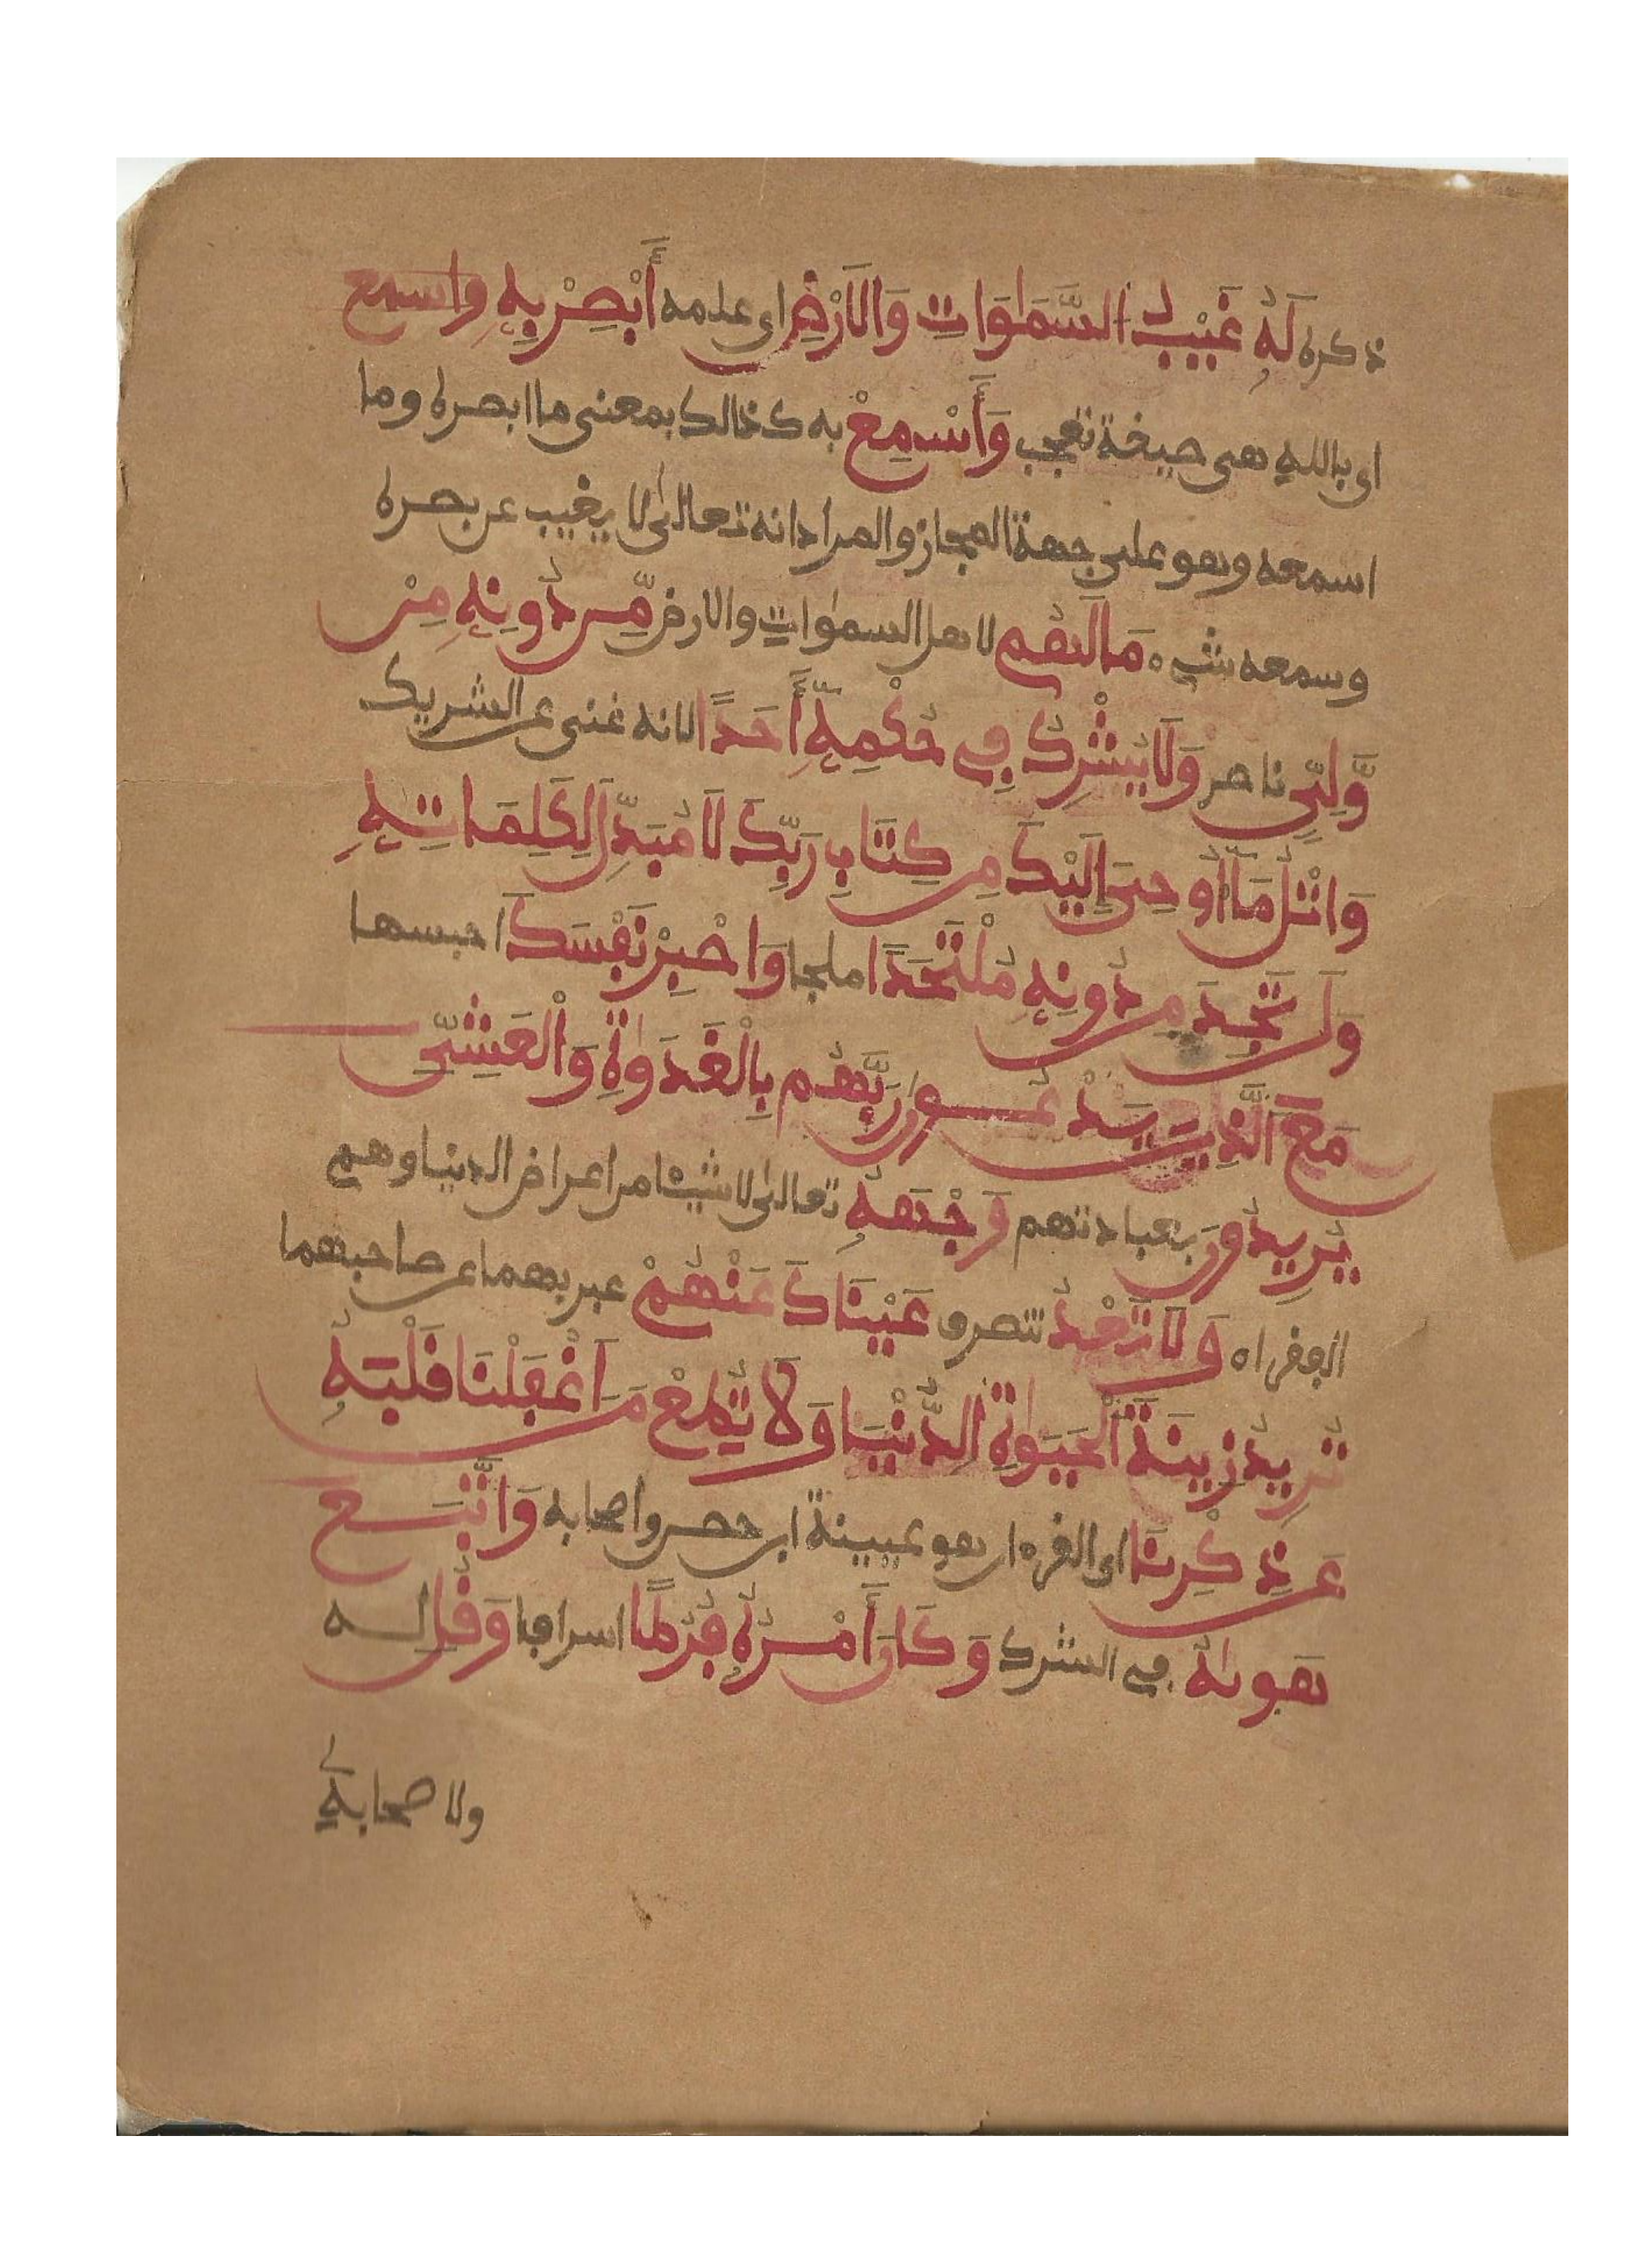 ذكره لَهُ غَيْبُ السَّمَٰوَاتِ وَالَارْضِ اى علمه أَبْصِرْ بِهِ واسمع
اى بالله هى صيغة تعجب وَأَسْمِعْ به كذالك بمعنى ما ابصره وما
اسمعه وهو على جهة المجاز والمراد انه تعالىٰ لا يغيب عن بصره
وسمعه شىء مَا لَهُم لاهل السمٰوات والارض مِّن دُونِهِ مِنْ
وَّلِىّٖ ناصر وَلَا يُشْرِكُ فِى حُكْمِهِ أَحَدًا لانه غنى عن الشريك
وَاتْلُ مَا أُوحِىَ إِلَيْكَ مِن كِتَابِ رَبِّكَ لَا مُبَدِّلَ لِكَلِمَاتِهِ
وَلَن تَجِدَ مِن دُونِهِ مُلْتَحَدًا ملجا وَاصْبِرْ نَفْسَكَ احبسها
مَعَ الَّذِينَ يَدْعُونَ رَبَّهُم بِالْغَدَوٰةِ وَالْعَشِىِّ
يُرِيدُونَ بعبادتهم وَجْهَهُ تعالىٰ لا شيئا من اعراض الدنيا وهم
الفقراء وَلَا تَعْدُ تنصرف عَيْنَاكَ عَنْهُمْ عبر بهما عن صاحبهما
تُرِيدُ زِينَةَ الْحَيَوٰةِ الدُّنْيَا وَلَا تُطِعْ مَنَ اَغْفَلْنَا قَلْبَهُ
عَن ذِكْرِنَا اى القرءان هو عيينة ابن حصن واصحابه وَاتَّبَعَ
هَوىٰهُ فى الشرك وَكَانَ أَمْرُهُ فُرُطًا اسرافا وَقُلِ له
ولاصحابه